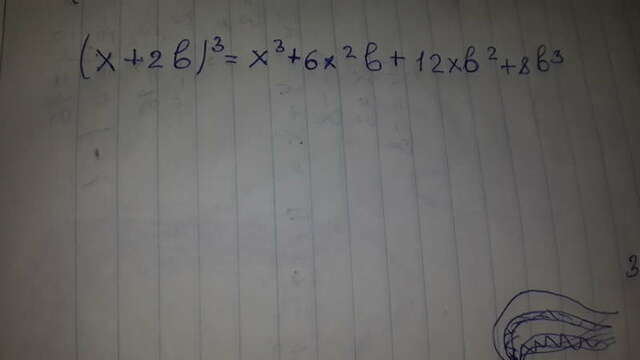 (x+2b)³= x³+6x²b+12xb²+8b³
3